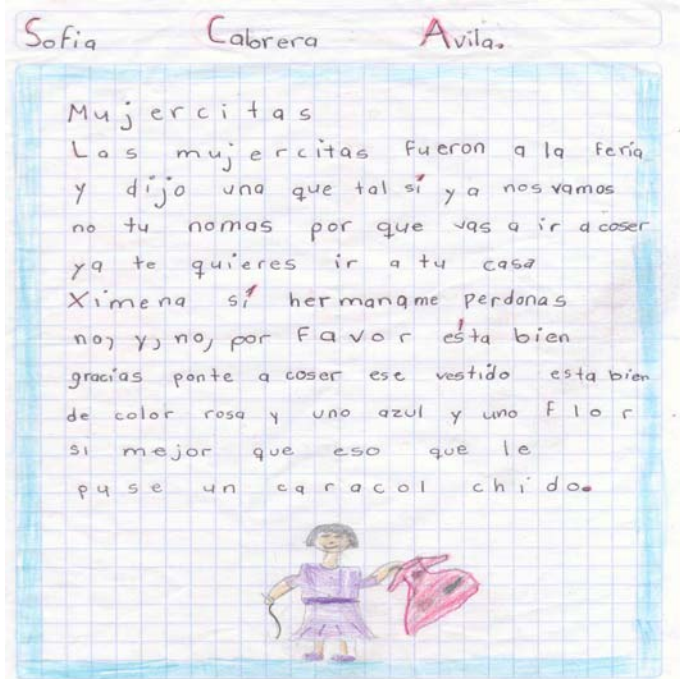 Sofia Cabrera Avila.
Mujercitas
Las mujercitas fueron a la feria
y dijo una que tal sí ya nos vamos
no tu nomas por que vas a ir a coser
ya te quieres ir a tu casa
Ximena sí hermana me perdonas
no, y, no, por Favor ésta bien
gracias ponte a coser ese vestido esta bien
de color rosa y uno azul y uno Flor
si mejor que eso que le
puse un caracol chido.